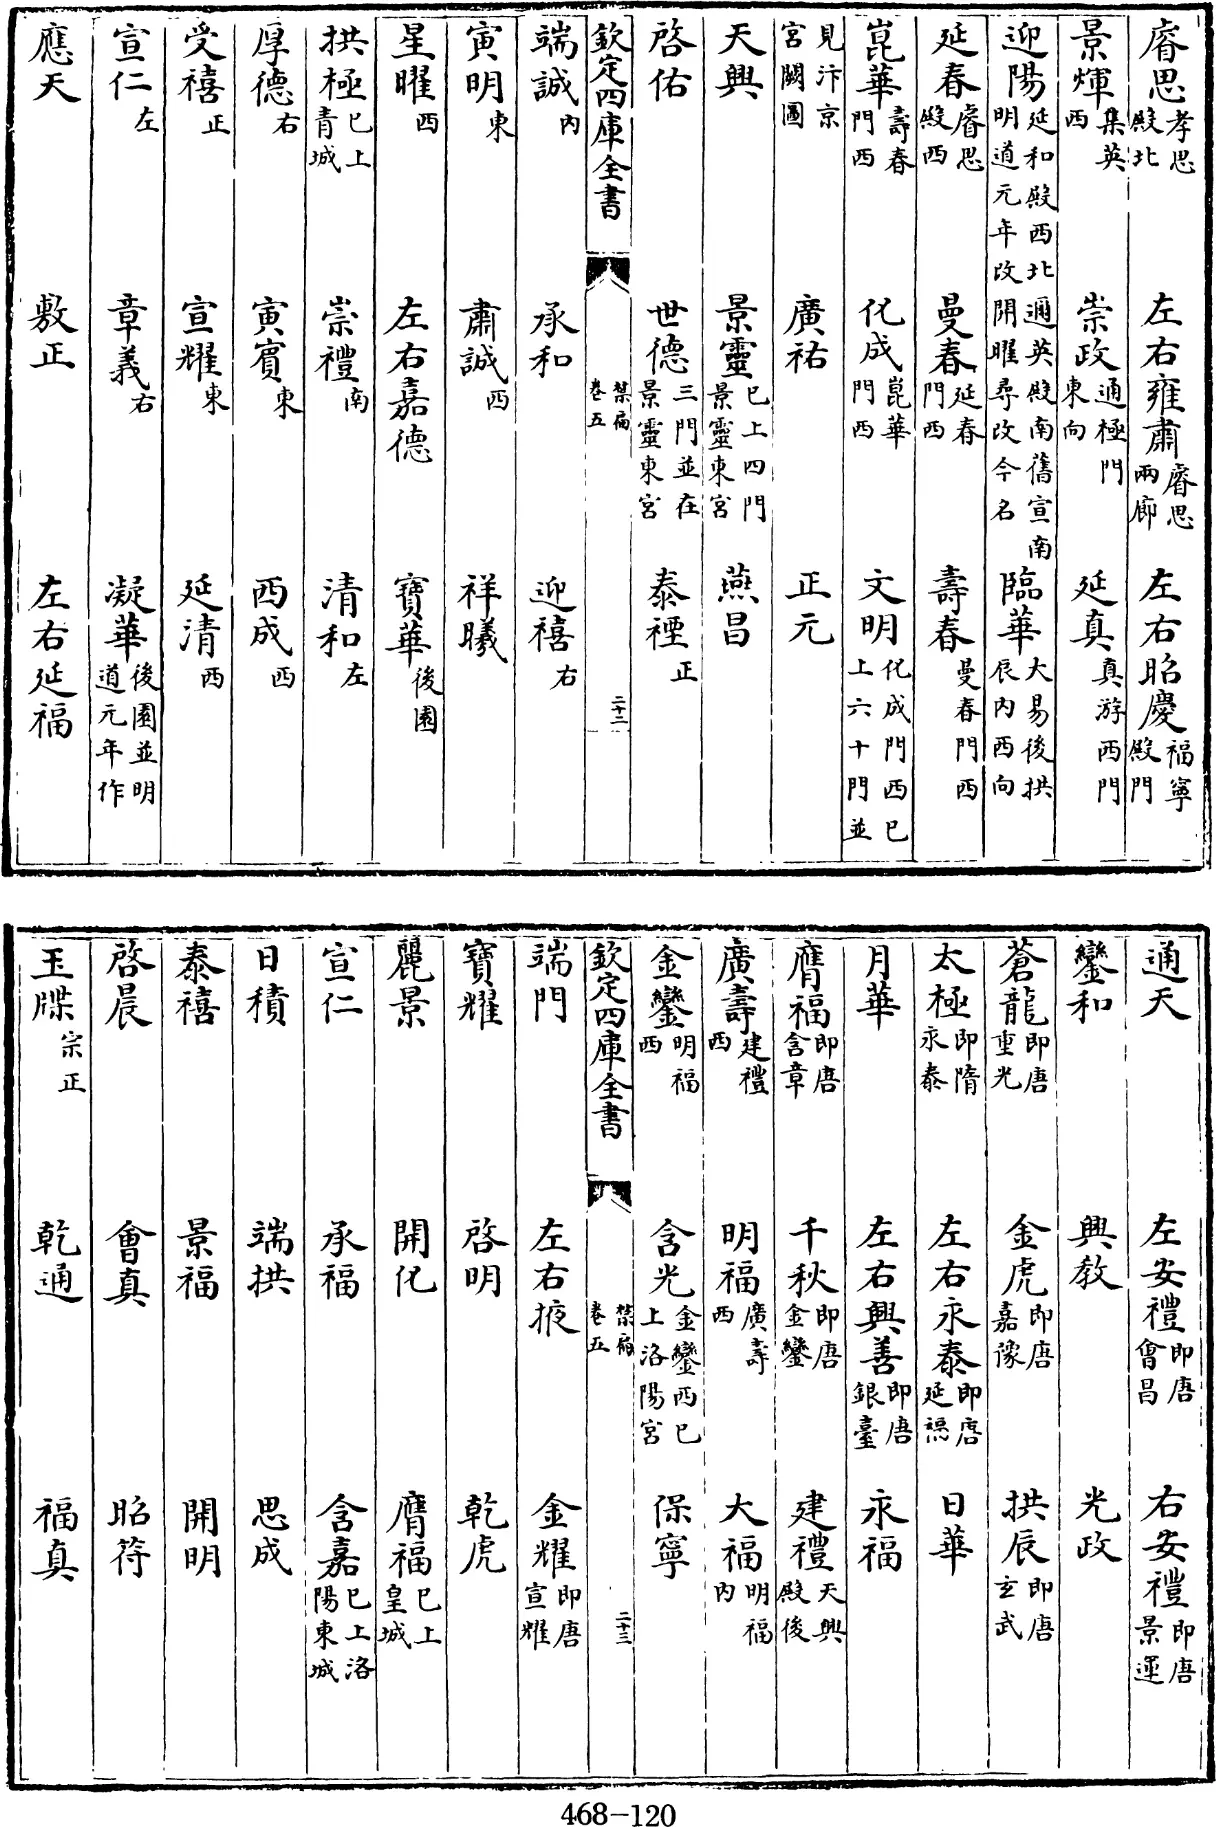 睿思孝思殿北　左右雍肅睿思兩廊　左右昭慶福寧殿門
景煇集英西　崇政通極門東向　延真真游西門
迎陽延和殿西北邇英殿南舊宣南明道元年改開曜尋改今名　臨華大易後拱辰内西向
延春睿思殿西　曼春延春門西　壽春曼春門西
崑華壽春門西　化成崑華門西　文明化成門西已上六十門並
見汴京宮闕圖　廣祐　正元
天興　景靈已上四門景靈東宮　燕昌
啓佑　世德三門並在景靈東宮　泰禋正
欽定四庫全書　禁扁卷五　二十二
端誠内　承和　迎禧右
寅明東　肅誠西　祥曦
星曜西　左右嘉德　寶華後園
拱極已上青城　崇禮南　清和左
厚德右　寅賓東　西成西
受禧正　宣耀東　延清西
宣仁左　章義右　凝華後園並明道元年作
應天　敷正　左右延福
通天　左安禮即唐會昌　右安禮即唐景運
鑾和　興教　光政
蒼龍即唐重光　金虎即唐嘉豫　拱辰即唐玄武
太極即隋永泰　左右永泰即唐延福　日華
月華　左右興善即唐銀臺　永福
膺福即唐含章　千秋即唐金鑾　建禮天興殿後
廣壽建禮西　明福廣壽西　大福明福内
金鑾明福西　含光金鑾西已上洛陽宮　保寧
欽定四庫全書　禁扁卷五　二十三
端門　左右掖　金耀即唐宣耀
寶耀　啓明　乾虎
麗景　開化　膺福已上皇城
宣仁　承福　含嘉已上洛陽東城
日積　端拱　思成
泰禧　景福　開明
啓晨　會真　昭符
玉牒宗正　乾通　福真
468-120